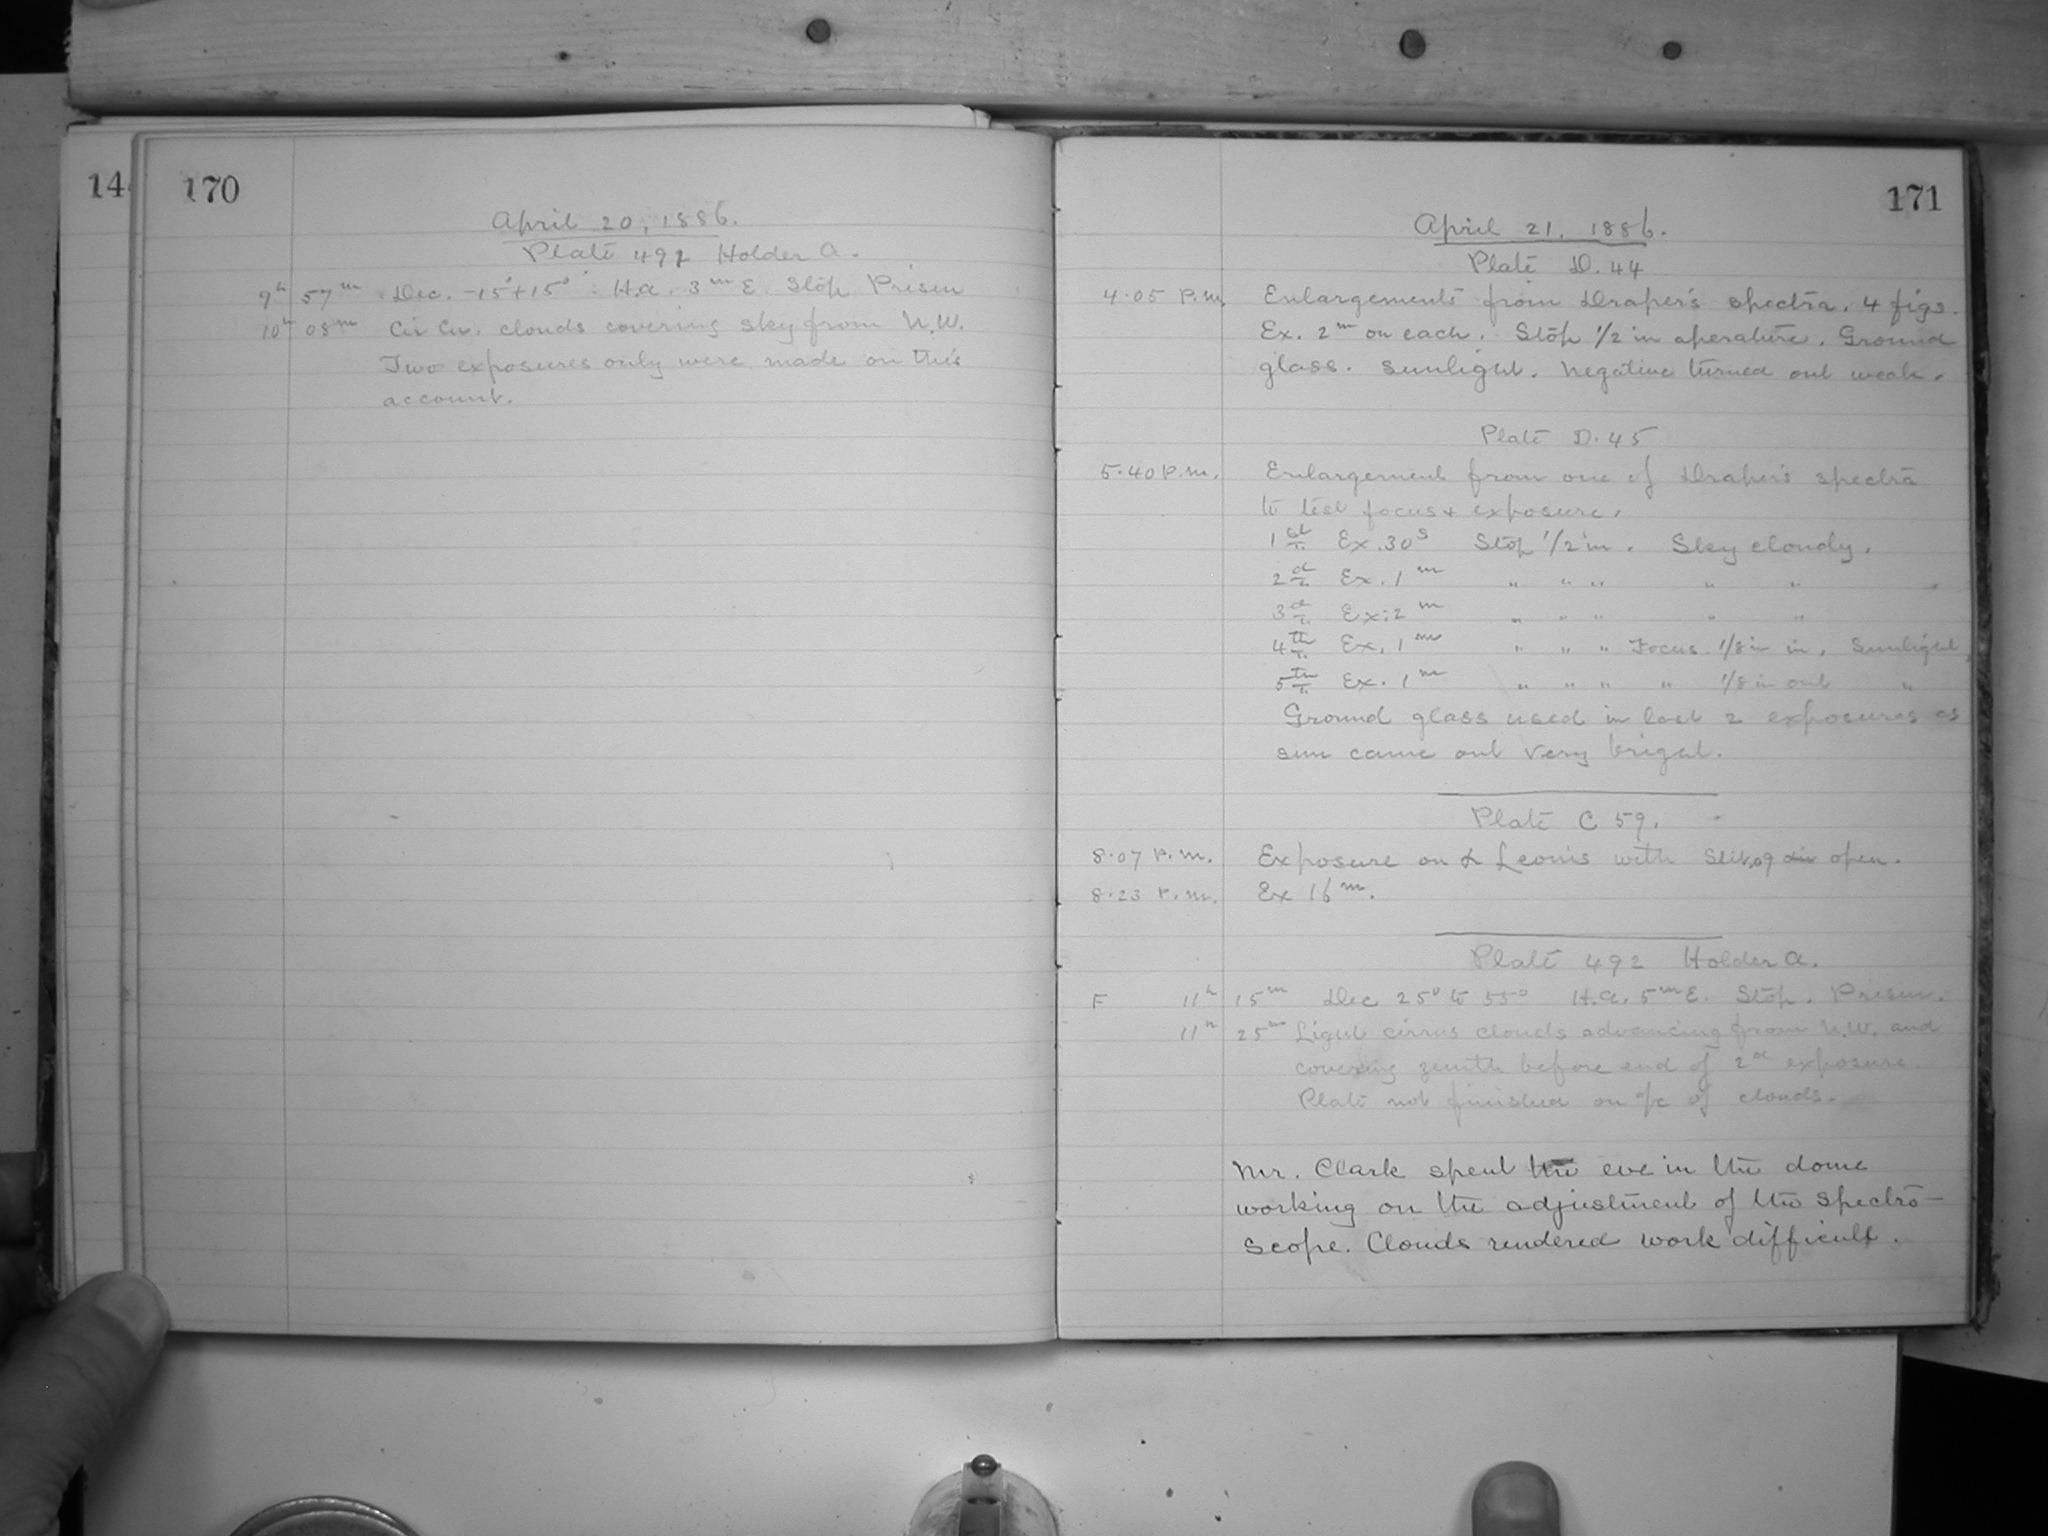 14
170
April 20, 1886.
Plate 491 Holder A.
9h 57m Dec. -15° + 15° H.a. 3m E. Stop Prism
10h 08m Cir Cu. clouds covering sky from N.W.
Two exposures only were made on this
account.
171
April 21. 1886.
Plate D. 44
4.05 P.m. Enlargements from Draper's spectra. 4 figs.
Ex. 2m on each. Stop 1/2 in aperature. Ground
glass. Sunlight. Negative turned out weak.
Plate D. 45
5.40 P.m. Enlargement from one of Draper's spectra
to test focus + exposure.
1st Ex. 30s Stop 1/2 in. Sky cloudy.
2d Ex. 1m " " " " "
3d Ex: 2m " " " " "
4th Ex. 1m " " " Focus 1/8 in in. Sunlight
5th Ex. 1m " " " " 1/8 in out "
Ground glass used in last 2 exposures as
sun came out very bright.
Plate C 59.
8.07 P.m. Exposure on α Leonis with Slit .09 open.
8.23 P.m. Ex 16m.
Plate 492 Holder A.
F 11h 15m Dec 25° to 55° H.a. 5m E. Stop. Prism.
11h 25m Light cirrus clouds advancing from N.W. and
covering zenith before end of 2d exposure.
Plate not finished on a/c of clouds.
Mr. Clark spent the eve in the dome
working on the adjustment of the spectro-
scope. Clouds rendered work difficult.